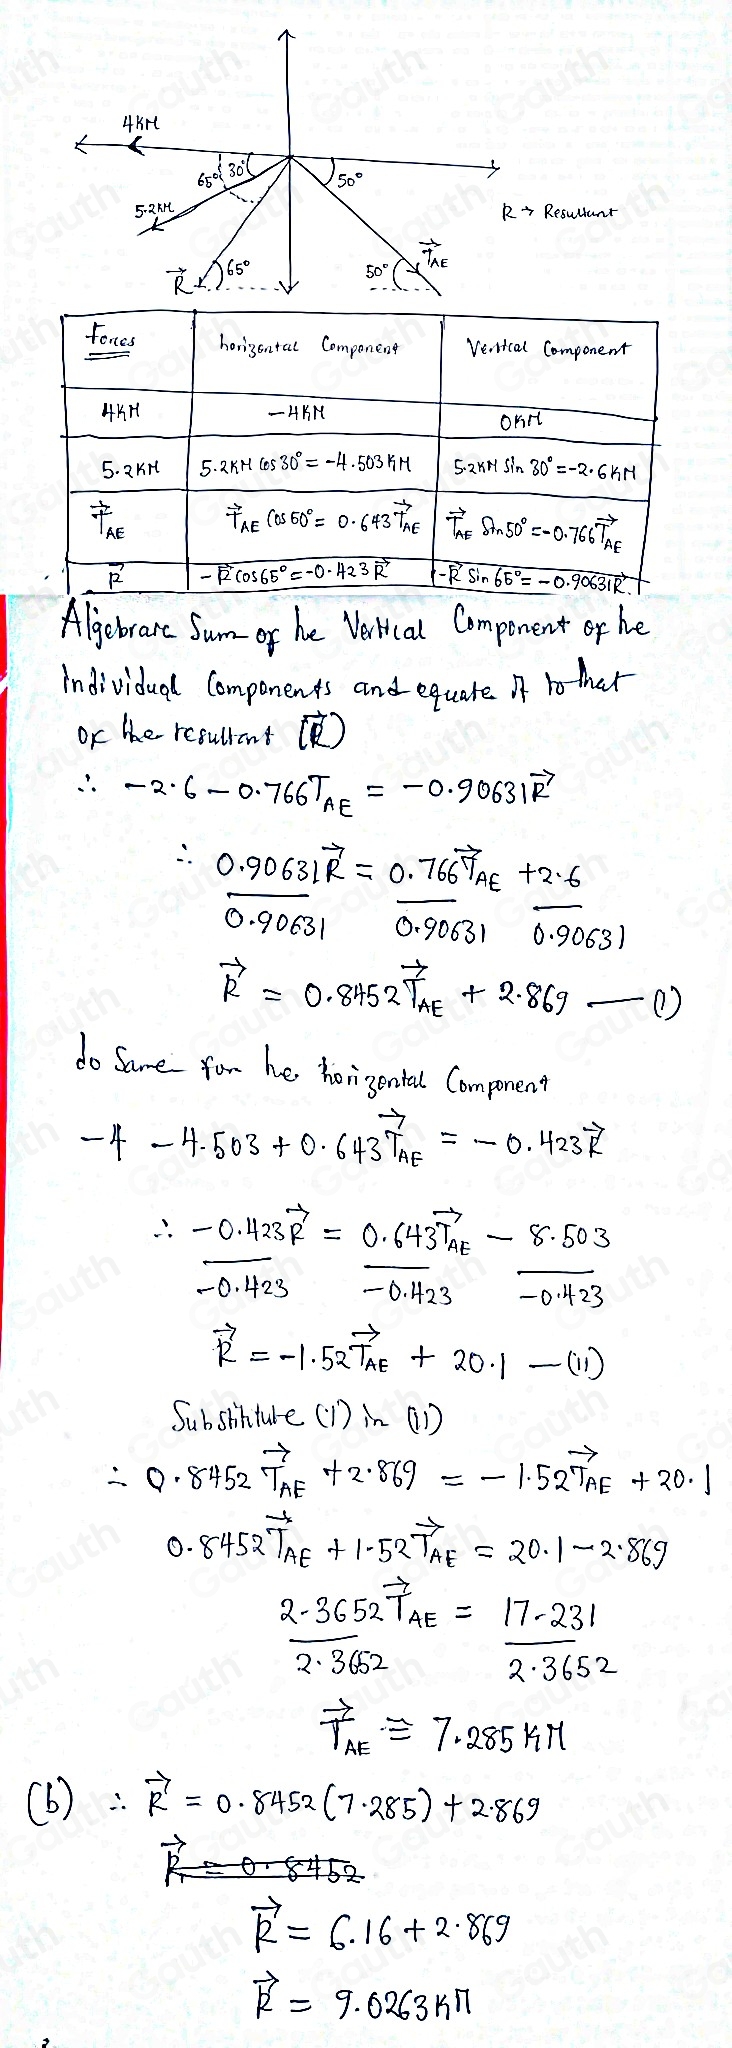 4KN
65° 30°
50°
5.2KN
R → Resultant
R 65°
50° T_AE
Forces horizontal Component Vertical Component
4KN -4KN 0KN
5.2KN 5.2KN Cos 30° = -4.503KN 5.2KN Sin 30° = -2.6KN
T_AE T_AE Cos 50° = 0.643T_AE T_AE Sin 50° = -0.766T_AE
R -R cos65° = -0.423R -R Sin 65° = -0.90631R
Algebraic Sum of he Vertical Component of he
Individual Components and equate it to that
of the resultant (R)
∴ -2.6 - 0.766T_AE = -0.90631R
∴ 0.90631R = 0.766T_AE + 2.6
0.90631 0.90631 0.90631
R = 0.8452T_AE + 2.869 — (1)
do Same for he horizontal Component
-4 - 4.503 + 0.643T_AE = -0.423R
∴ -0.423R = 0.643T_AE - 8.503
-0.423 -0.423 -0.423
R = -1.52T_AE + 20.1 — (11)
Substitute (1) in (11)
∴ 0.8452T_AE + 2.869 = -1.52T_AE + 20.1
0.8452T_AE + 1.52T_AE = 20.1 - 2.869
2.3652T_AE = 17.231
2.3652 2.3652
T_AE ≅ 7.285KN
(b) ∴ R = 0.8452(7.285) + 2.869
R = 0.8452
R = 6.16 + 2.869
R = 9.0263KN